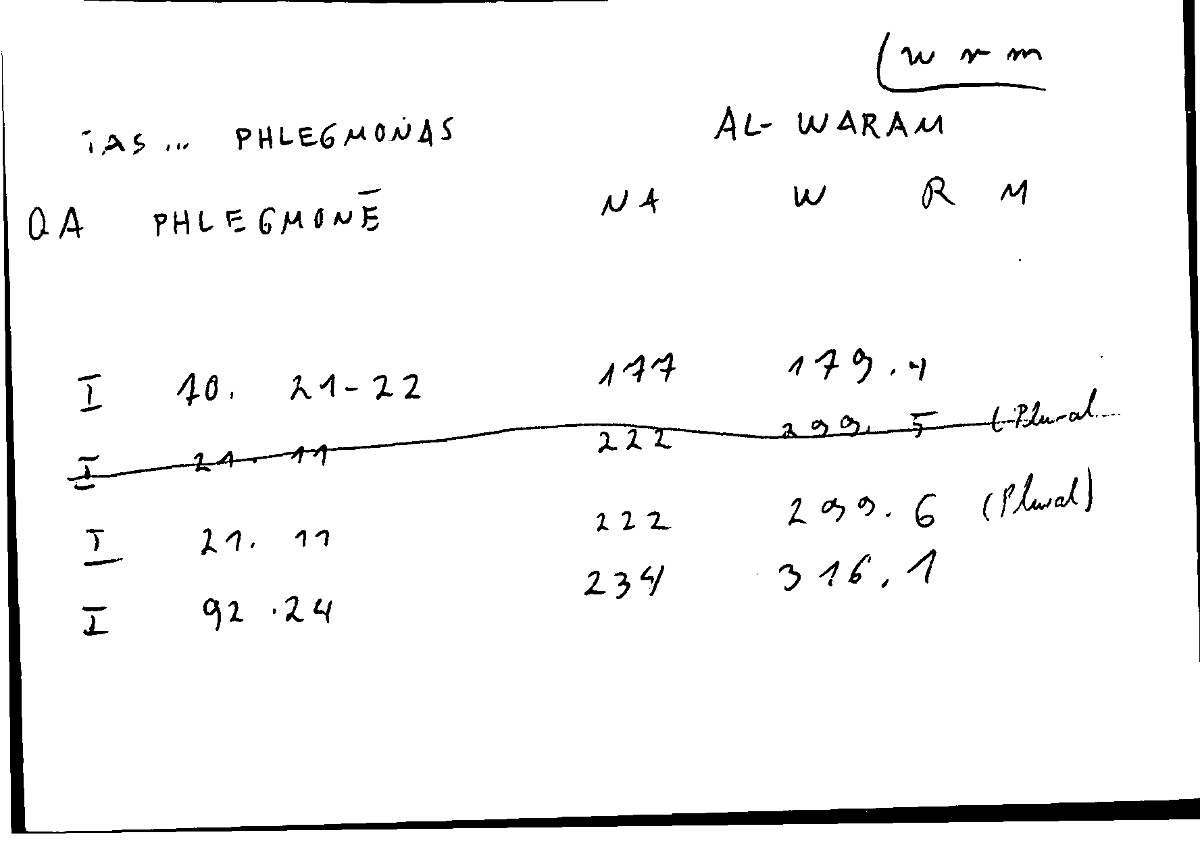 (w r m
TAS ... PHLEGMONAS AL- WARAM
QA PHLEGMONĒ NA W R M
I 10. 21-22 177 179.4
I 21. 11 222 299. 5 (Plural...
I 21. 11 222 299. 6 (Plural)
I 92.24 234 316.1